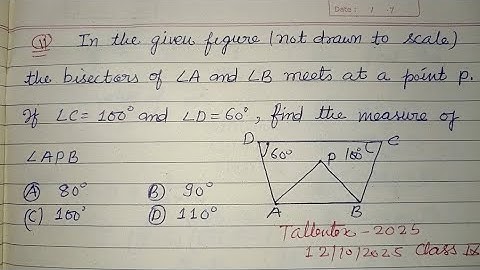 Date: / /
(11) In the given figure (not drawn to scale)
the bisectors of ∠A and ∠B meets at a point p.
If ∠C= 100° and ∠D= 60°, find the measure of
∠APB
(A) 80° (B) 90°
(C) 100° (D) 110°
D C
60° P 100°
A B
Tallentex - 2025
12/10/2025 Class IX